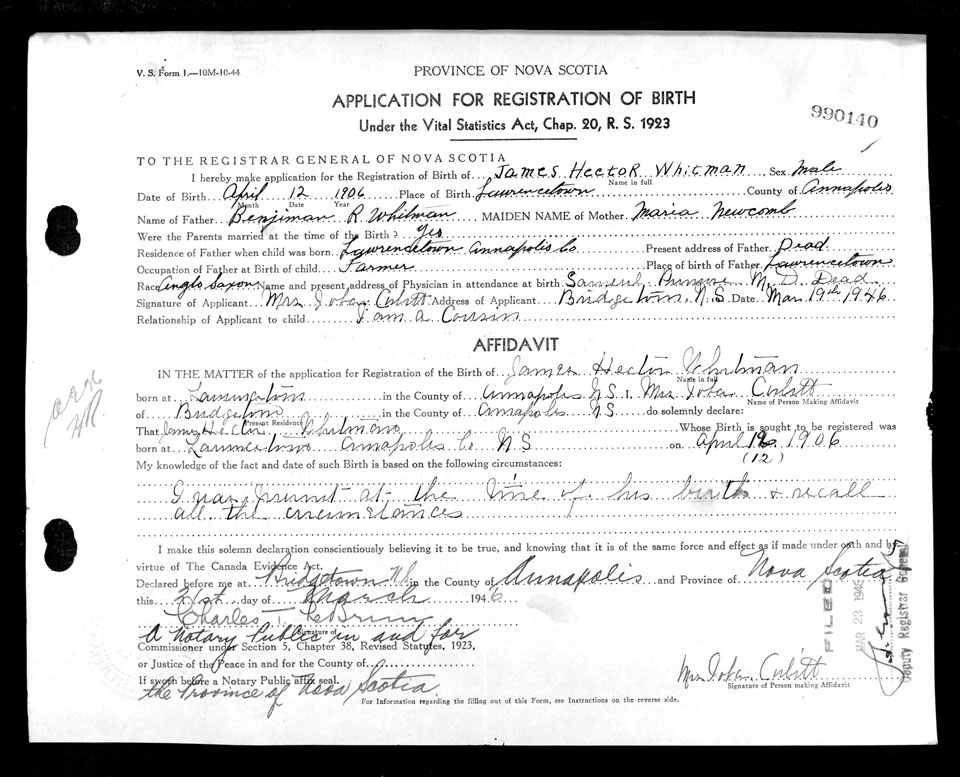 V. S. Form 1.—10M-10-44
PROVINCE OF NOVA SCOTIA
APPLICATION FOR REGISTRATION OF BIRTH
Under the Vital Statistics Act, Chap. 20, R. S. 1923
990140
TO THE REGISTRAR GENERAL OF NOVA SCOTIA
I hereby make application for the Registration of Birth of James Hector Whitman Sex Male
Name in full
Date of Birth April 12 1906 Place of Birth Lawrencetown County of Annapolis
Month Date Year
Name of Father Benjiman R Whitman MAIDEN NAME of Mother Maria Newcomb
Were the Parents married at the time of the Birth? Yes
Residence of Father when child was born Lawrencetown Annapolis Co Present address of Father Dead
Occupation of Father at Birth of child Farmer Place of birth of Father Lawrencetown
Race Anglo Saxon Name and present address of Physician in attendance at birth Samuel M. D. Dead
Signature of Applicant Mrs Corbitt Address of Applicant Bridgetown N.S. Date Mar 19th 1946
Relationship of Applicant to child I am a Cousin
AFFIDAVIT
IN THE MATTER of the application for Registration of the Birth of James Hector Whitman
Name in full
born at Lawrencetown in the County of Annapolis N.S. I, Mrs Corbitt
Name of Person Making Affidavit
of Bridgetown in the County of Annapolis N S do solemnly declare:
Present Residence
That James Hector Whitman Whose Birth is sought to be registered was
born at Lawrencetown Annapolis Co N S on April 1906
(12)
My knowledge of the fact and date of such Birth is based on the following circumstances:
I was present at the time of his birth & recall
all the circumstances
I make this solemn declaration conscientiously believing it to be true, and knowing that it is of the same force and effect as if made under oath and by
virtue of The Canada Evidence Act.
Declared before me at Bridgetown N.S. in the County of Annapolis and Province of Nova Scotia
this 21st day of March 1946
Charles T.
Signature of
A Notary Public in and for
Commissioner under Section 5, Chapter 38, Revised Statutes, 1923,
or Justice of the Peace in and for the County of
If sworn before a Notary Public affix seal.
the Province of Nova Scotia
Mrs Corbitt
Signature of Person making Affidavit
For Information regarding the filling out of this Form, see Instructions on the reverse side.
FILED
MAR 23 1946
Deputy Registrar General